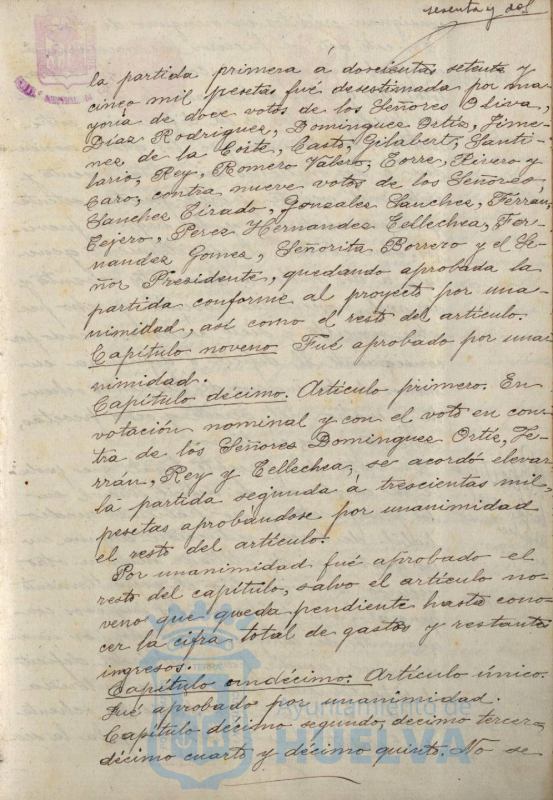 sesenta y dos
la partida primera á doscientas setenta y
cinco mil pesetas fué desestimada por ma-
yoría de doce votos de los Señores Oliva,
Díaz Rodriguez, Dominguez Ortíz, Jime-
nez, de la Corte, Casto, Gilabert, Santi-
lario, Rey, Romero Valero, Torre, Rivero y
Caro, contra nueve votos de los Señores,
Sanchez Tirado, Gonzalez Sanchez, Terrau,
Tejero, Perez Hernandez Tellechea, Fer-
nandez Gomez, Señorita Borrero y el Se-
ñor Presidente, quedando aprobada la
partida conforme al proyecto por una-
nimidad, así como el resto del artículo.
Capítulo noveno Fué aprobado por unai
nimidad.
Capítulo décimo. Artículo primero. En
votación nominal y con el voto en con-
tra de los Señores Dominguez Ortíz, Te-
rrán, Rey y Tellechea, se acordó elevar
la partida segunda á trescientas mil
pesetas aprobandose por unanimidad
el resto del artículo.
Por unanimidad fué aprobado el
resto del capítulo, salvo el artículo no-
veno que queda pendiente hasta cono-
cer la cifra total de gastos y restantes
ingresos.
Capítulo undécimo. Artículo único.
Fué aprobado por unanimidad.
Capítulo décimo segundo, decimo tercer-
décimo cuarto y décimo quinto. No se
Ayuntamiento de
HUELVA